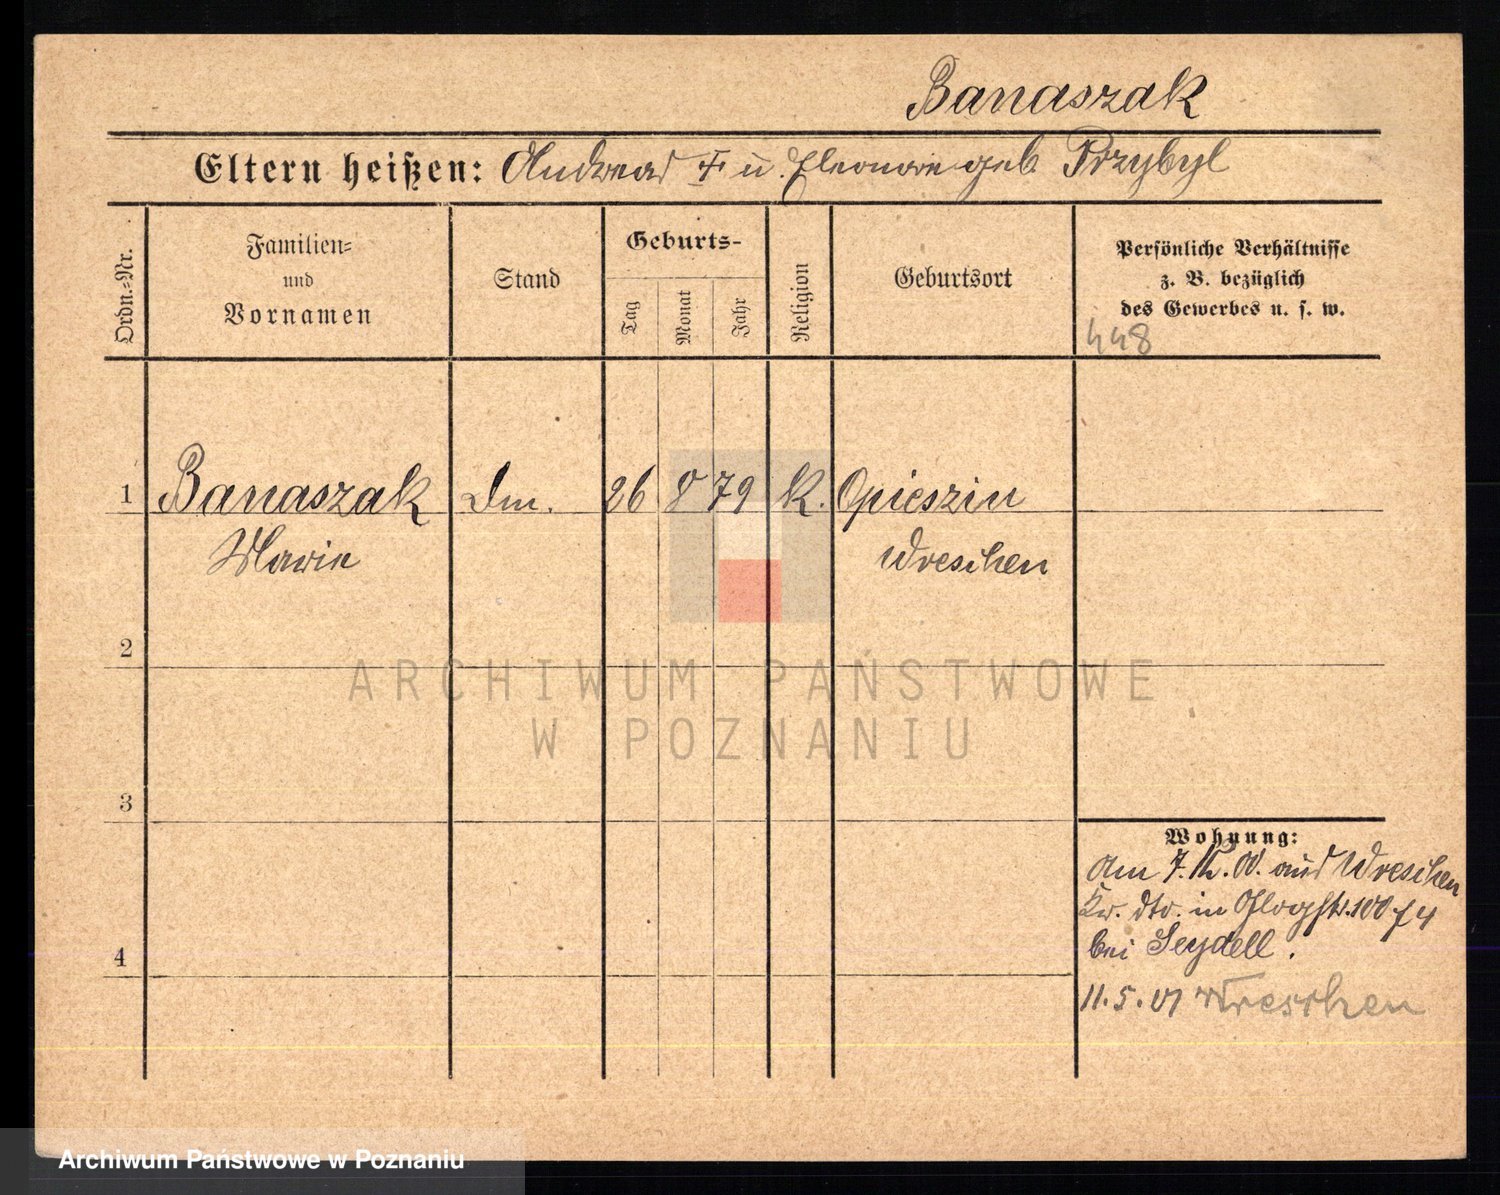 Banaszak
Eltern heißen: Andreas † u. Eleonore geb. Przybyl
Ordn.-Nr.
Familien-
und
Vornamen
Stand
Geburts-
Tag
Monat
Jahr
Religion
Geburtsort
Persönliche Verhältnisse
z. B. bezüglich
des Gewerbes u. s. w.
448
1 Banaszak Dm. 26 8 79 K. Opieszin
Marie Wreschen
2
ARCHIWUM PAŃSTWOWE
W POZNANIU
3
4
Wohnung:
Am 7. 12. 00. aus Wreschen
Kr. dto. in
bei Seydell.
11. 5. 01 Wreschen
Archiwum Państwowe w Poznaniu